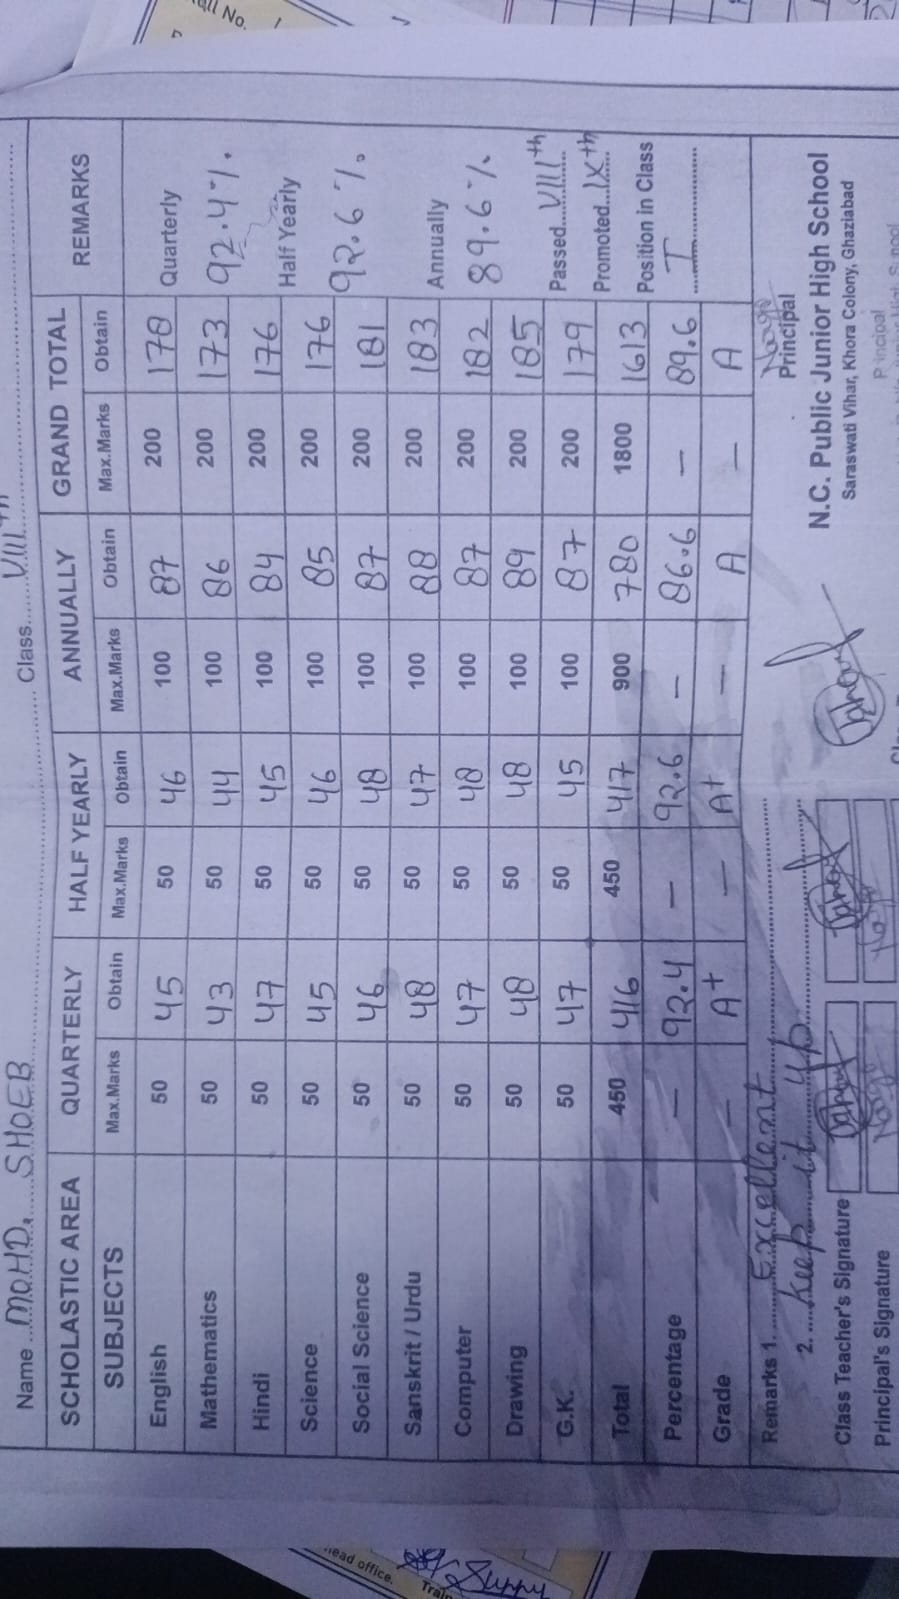 Name ..MOHD. SHOEB.. Class..VIIIth
SCHOLASTIC AREA QUARTERLY HALF YEARLY ANNUALLY GRAND TOTAL REMARKS
SUBJECTS Max.Marks Obtain Max.Marks Obtain Max.Marks Obtain Max.Marks Obtain
English 50 45 50 46 100 87 200 178 Quarterly
Mathematics 50 43 50 44 100 86 200 173 92.4%.
Hindi 50 47 50 45 100 84 200 176 Half Yearly
Science 50 45 50 46 100 85 200 176 92.6%.
Social Science 50 46 50 48 100 87 200 181
Sanskrit / Urdu 50 48 50 47 100 88 200 183 Annually
Computer 50 47 50 48 100 87 200 182 89.6%
Drawing 50 48 50 48 100 89 200 185
G.K. 50 47 50 45 100 87 200 179 Passed....VIIIth
Total 450 416 450 417 900 780 1800 1613 Promoted...IXth
Percentage — 92.4 — 92.6 — 86.6 — 89.6 Position in Class
Grade — A+ — A+ — A — A I
Remarks 1. Excellent
2. Keep it up
Principal
N.C. Public Junior High School
Saraswati Vihar, Khora Colony, Ghaziabad
Class Teacher's Signature
Principal's Signature
Principal
No.
head office.